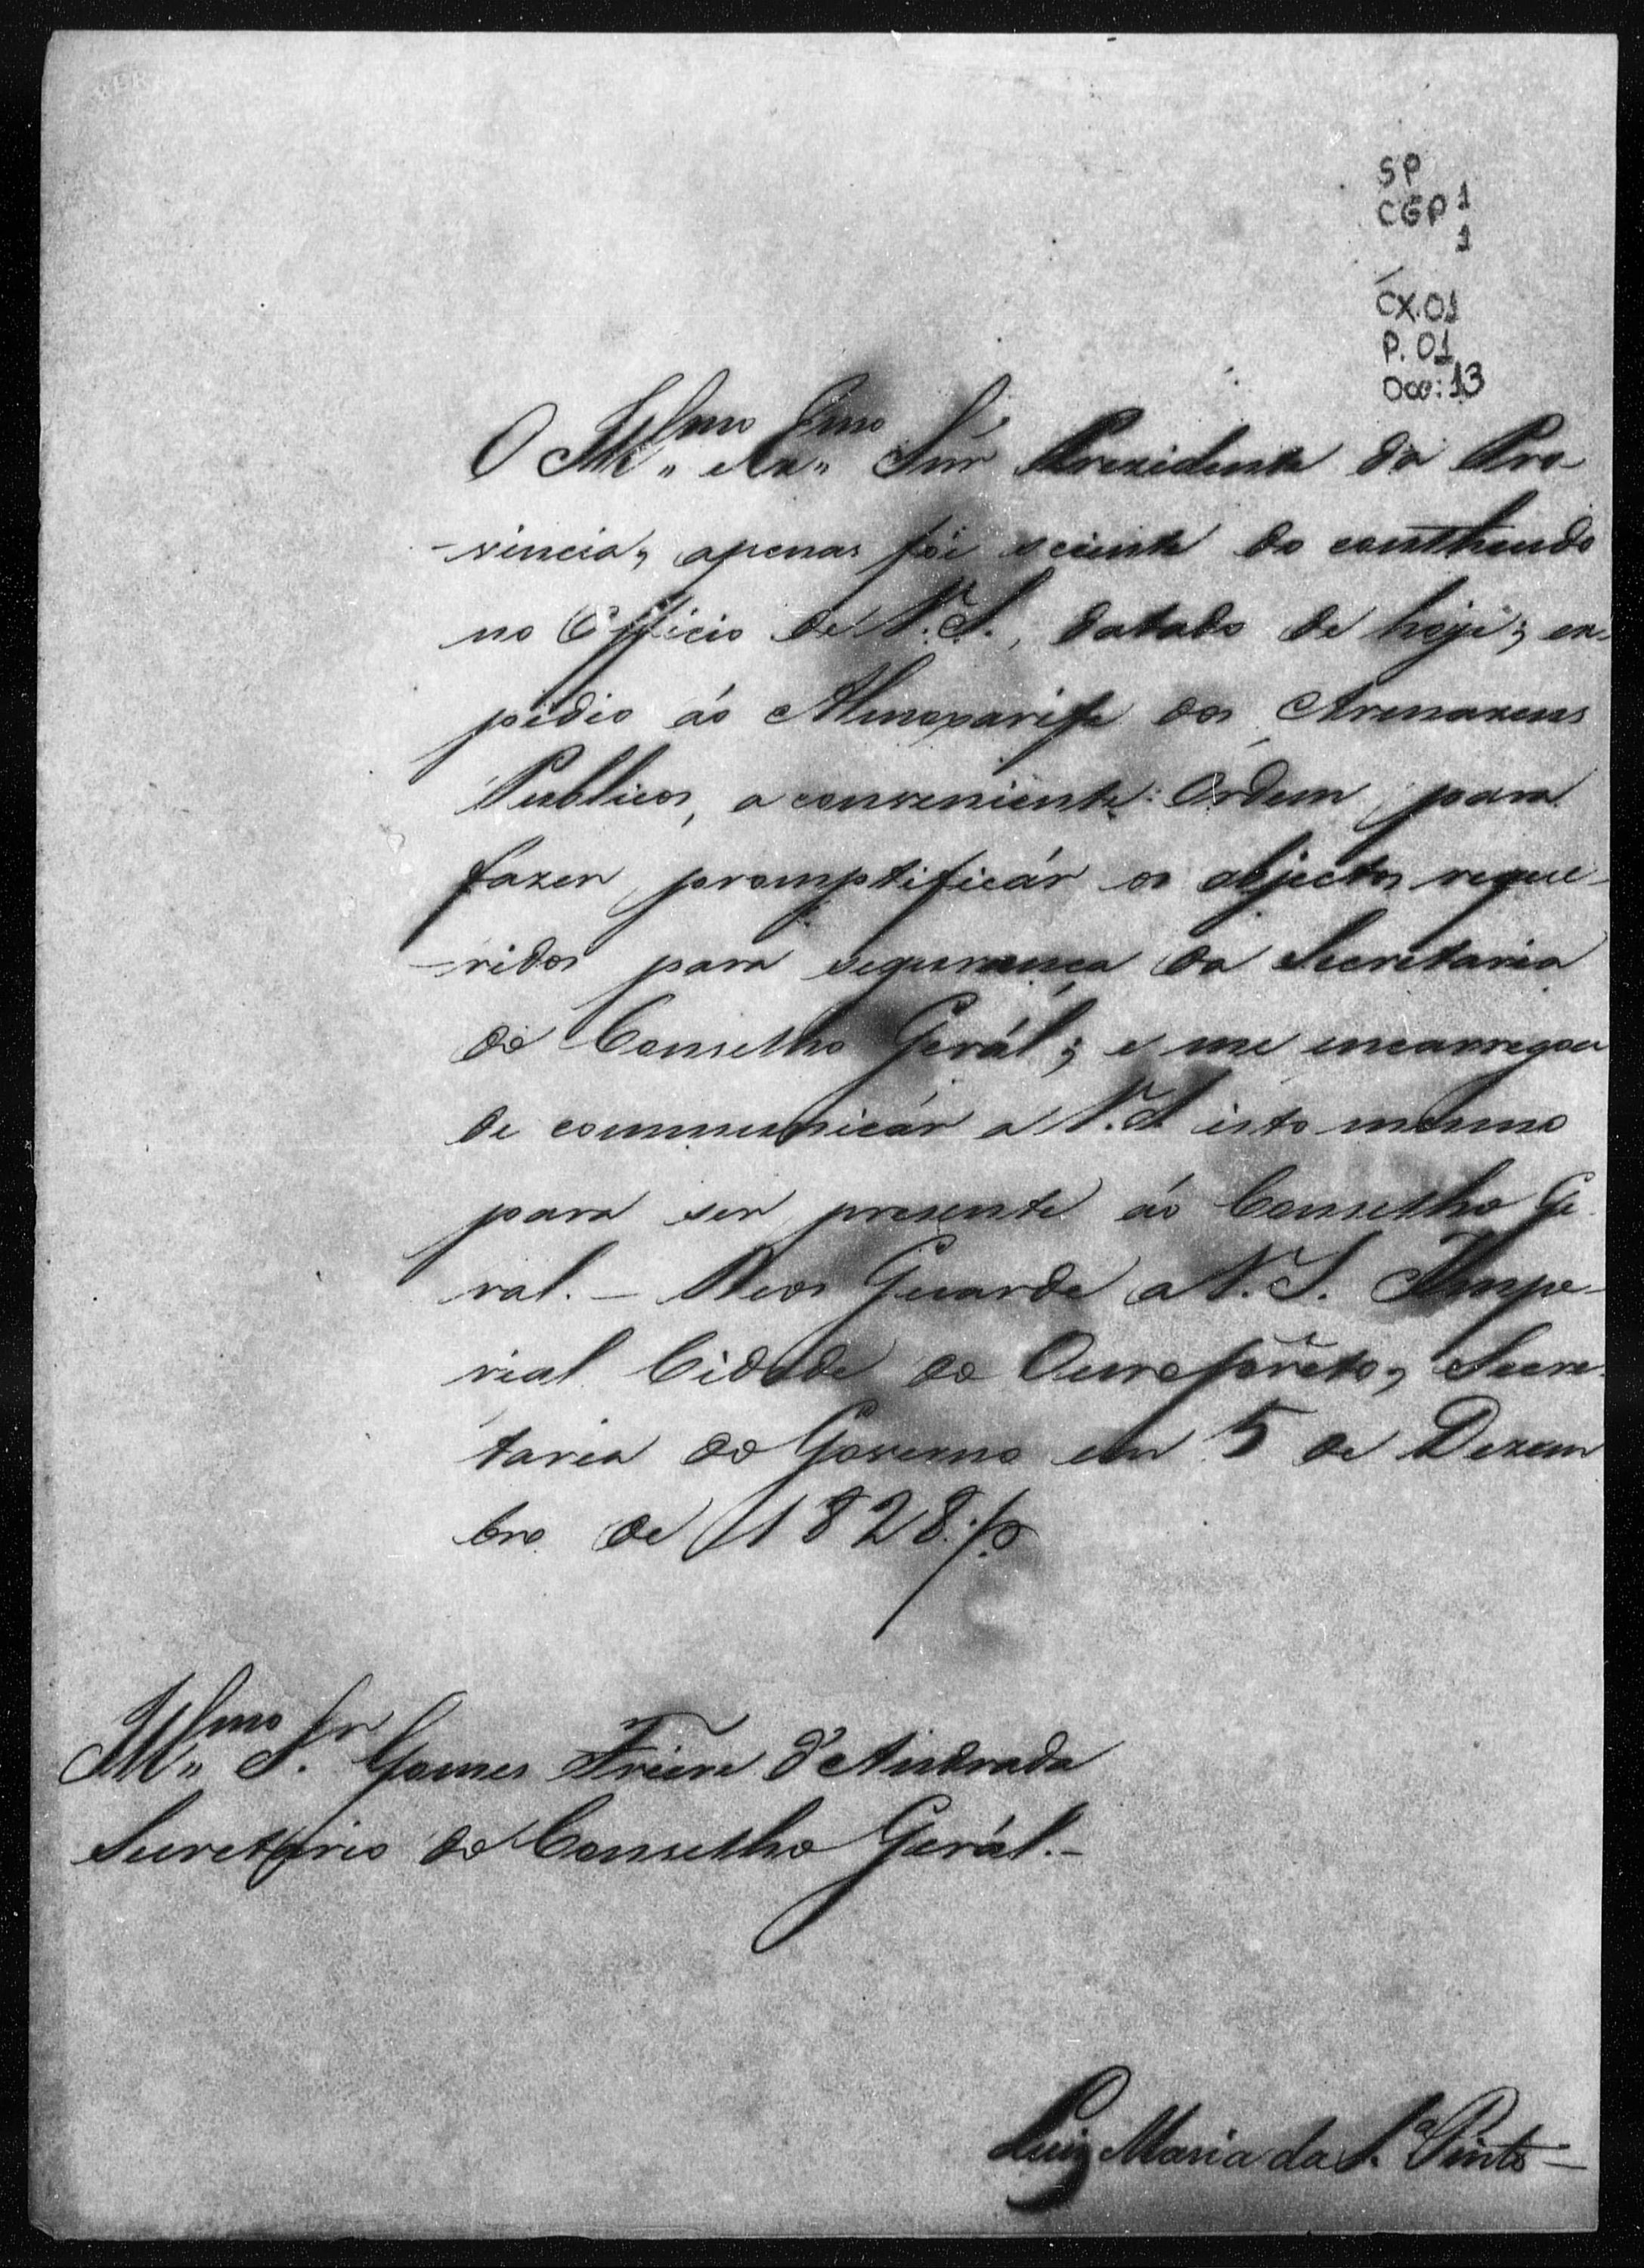 SP
CGP 1
1
CX.01
P. 01
Doc: 13
O Ill.mo e Ex.mo Snr. Prezidente da Pro-
-vincia, apenas foi sciente do contheudo
no Officio de V.S., datado de hoje; ex-
pedio áo Almoxarife dos Armazens
Publicos, a conveniente Ordem para
fazer promptificár os objectos reque-
-ridos para segurança da Secretaria
do Conselho Gerál; e me encarregou
de communicár a V.S. isto mesmo
para ser presente áo Conselho Ge-
ral. - Deos Guarde a V.S. Impe-
rial Cidade do Ouro prêto, Secre-
taria do Governo em 5 de Dezem
bro de 1828.
Ill.mo Sr. Gomes Freire d'Andrada
Secretario do Conselho Gerál. -
Luiz Maria da S.a Pinto -